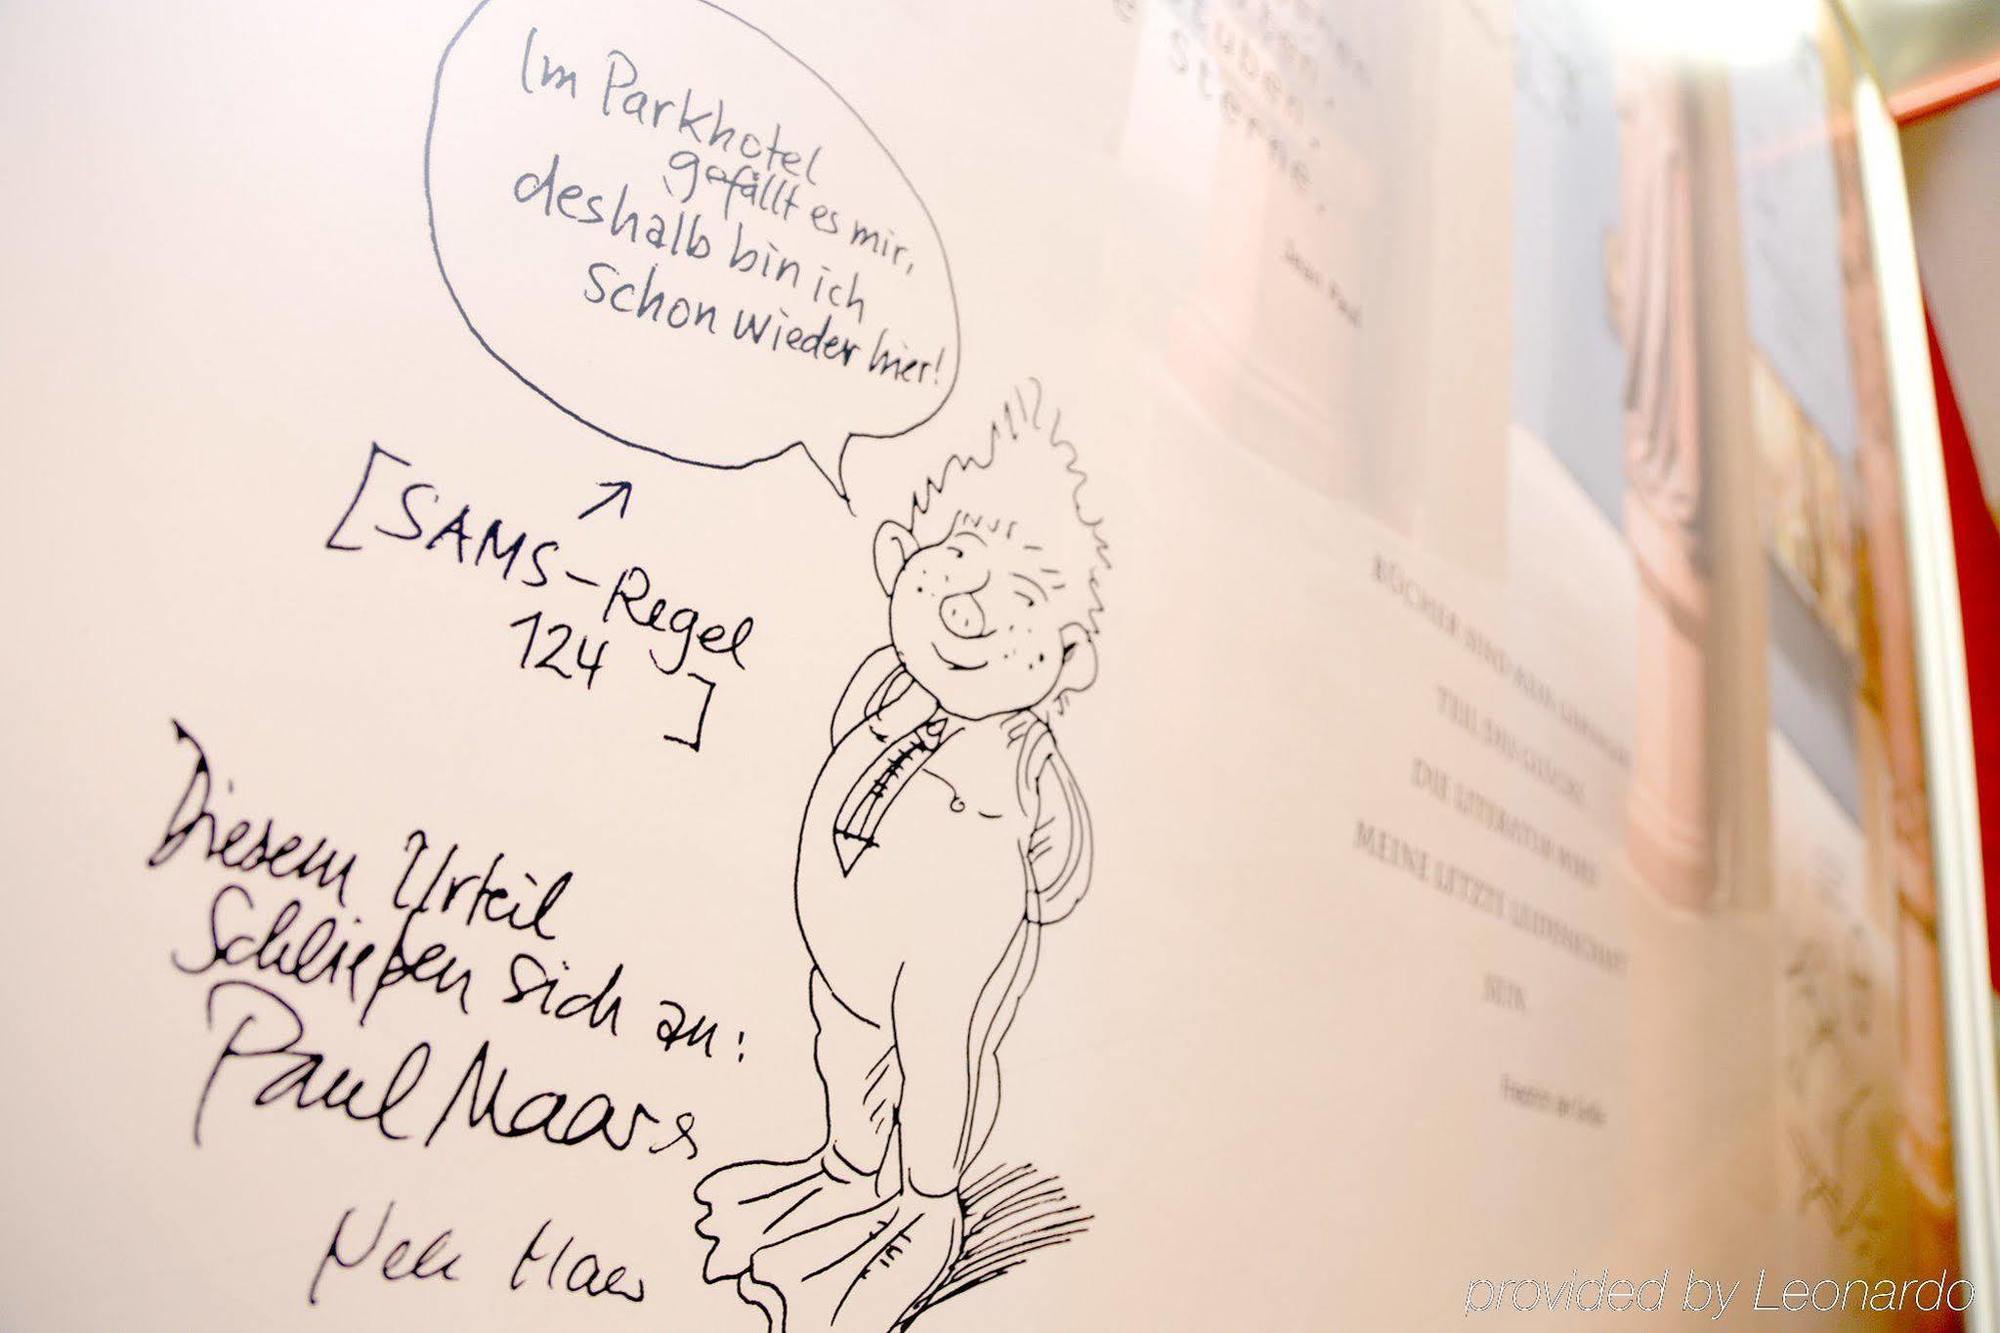 Im Parkhotel
gefällt es mir,
deshalb bin ich
schon wieder hier!
[SAMS-Regel
124
]
Diesem Urteil
schließen sich an:
Paul Maar &
Nele Maar
Sterne.
Jean Paul
BÜCHER SIND
TEIL DES GLÜCKS.
DIE LITERATUR WIRD
MEINE LETZTE LEIDENSCHAFT
SEIN.
provided by Leonardo